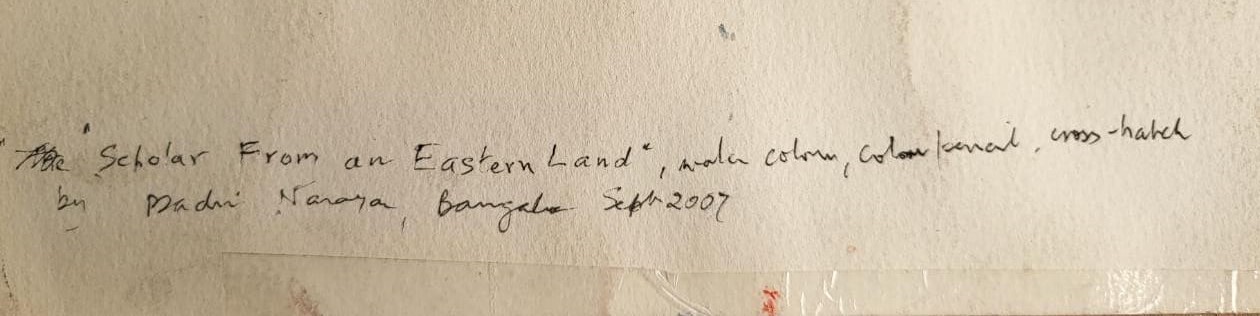 "Scholar From an Eastern Land", water colour, colour pencil, cross-hatch
by Narayan, Bangalore Sept 2007